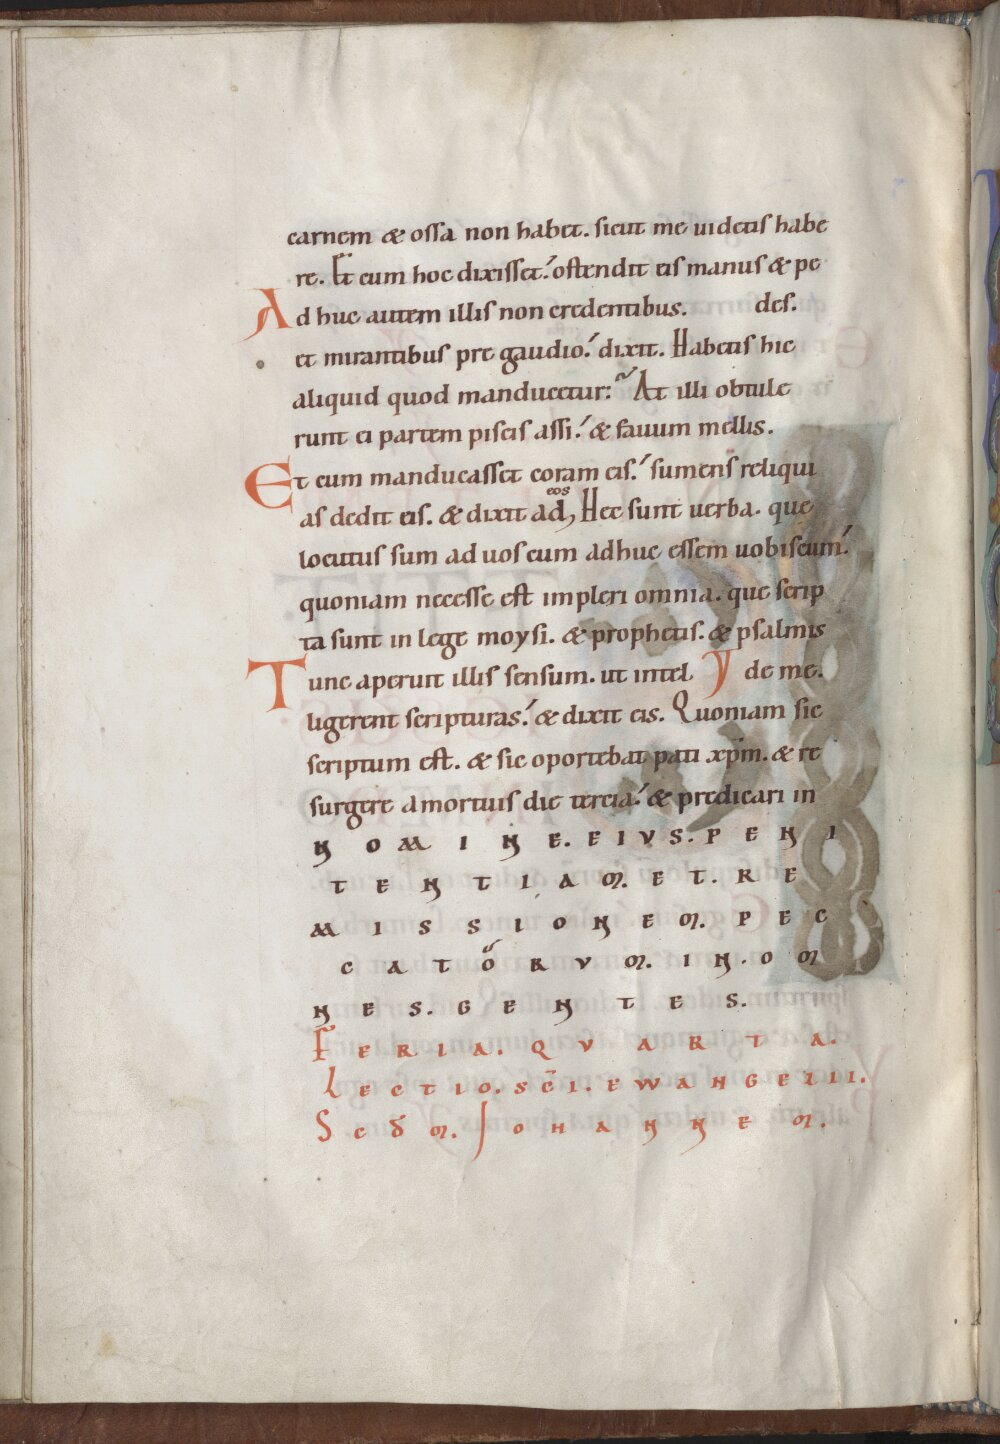 carnem & ossa non habet. sicut me uidetis habe
re. Et cum hoc dixisset. ostendit eis manus & pe
Ad huc autem illis non credentibus. des.
et mirantibus pre gaudio. dixit. Habetis hic
aliquid quod manducetur: At illi obtule
runt ei partem piscis assi. & fauum mellis.
Et cum manducasset coram eis. sumens reliqui
eos
as dedit eis. & dixit ad, Hec sunt uerba. que
locutus sum ad uos cum adhuc essem uobiscum.
quoniam necesse est impleri omnia. que scrip
ta sunt in lege moysi. & prophetis. & psalmis
Tunc aperuit illis sensum. ut intel de me.
ligerent scripturas. & dixit eis. Quoniam sic
scriptum est. & sic oportebat pati xp̄m. & re
surgere a mortuis die tercia. & predicari in
NOMINE. EIVS. PENI
TENTIAM. ET. RE
MISSIONEM. PEC
CATORVM. IN. OM
NES. GENTES.
FERIA. QVARTA.
LECTIO. SC̄I. EWANGELII.
SCD̄M. IOHANNEM.